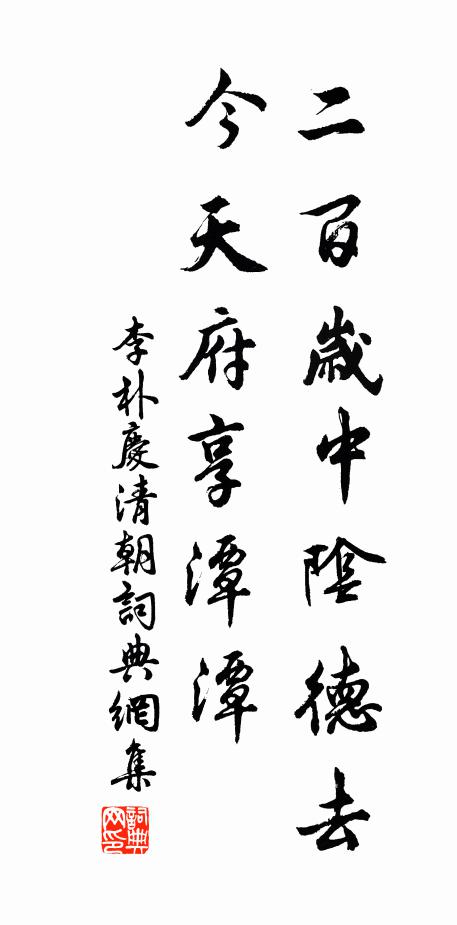 二百歲中陰德去
今天府享潭潭
李朴慶清朝詞典網集
詞典網印